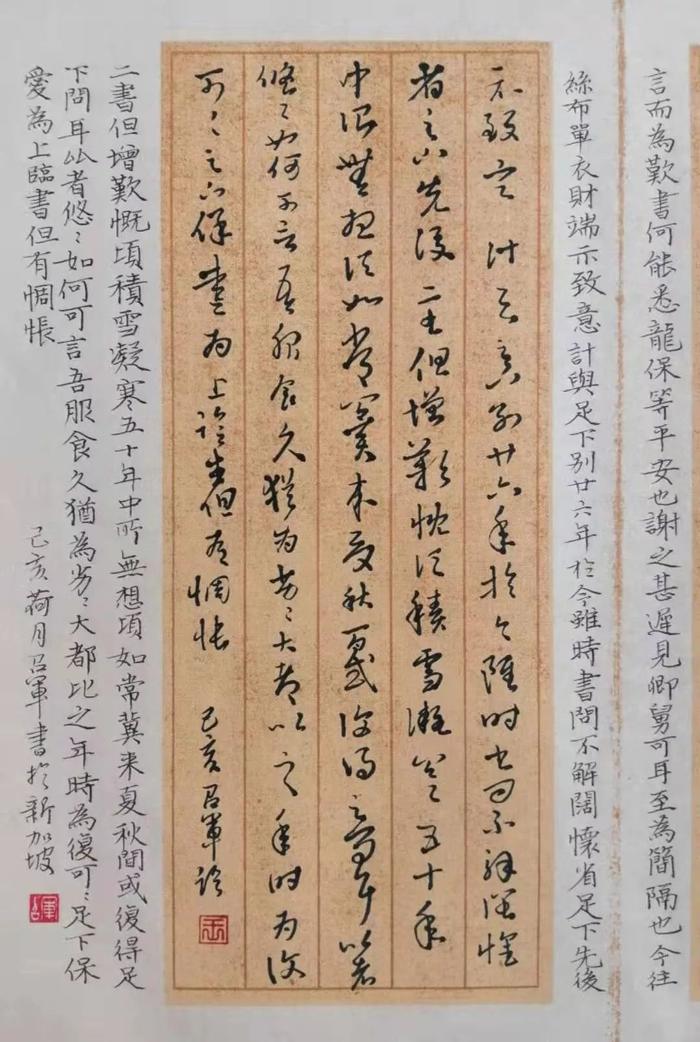 言而為歎書何能悉龍保等平安也謝之甚遲見卿舅可耳至為簡隔也今往
絲布單衣財端示致意計與足下別廿六年於今雖時書問不解闊懷省足下先後
示致意 計與足下別廿六年於今雖時書問不解闊懷
省足下先後二書但增歎慨頃積雪凝寒五十年
中所無想頃如常冀來夏秋間或復得足下問耳比者
悠〻如何可言吾服食久猶為劣〻大都比之年時為復
可〻足下保愛為上臨書但有惆悵 己亥召軍臨
二書但增歎慨頃積雪凝寒五十年中所無想頃如常冀來夏秋間或復得足
下問耳比者悠〻如何可言吾服食久猶為劣〻大都比之年時為復可〻足下保
愛為上臨書但有惆悵
己亥荷月召軍書於新加坡